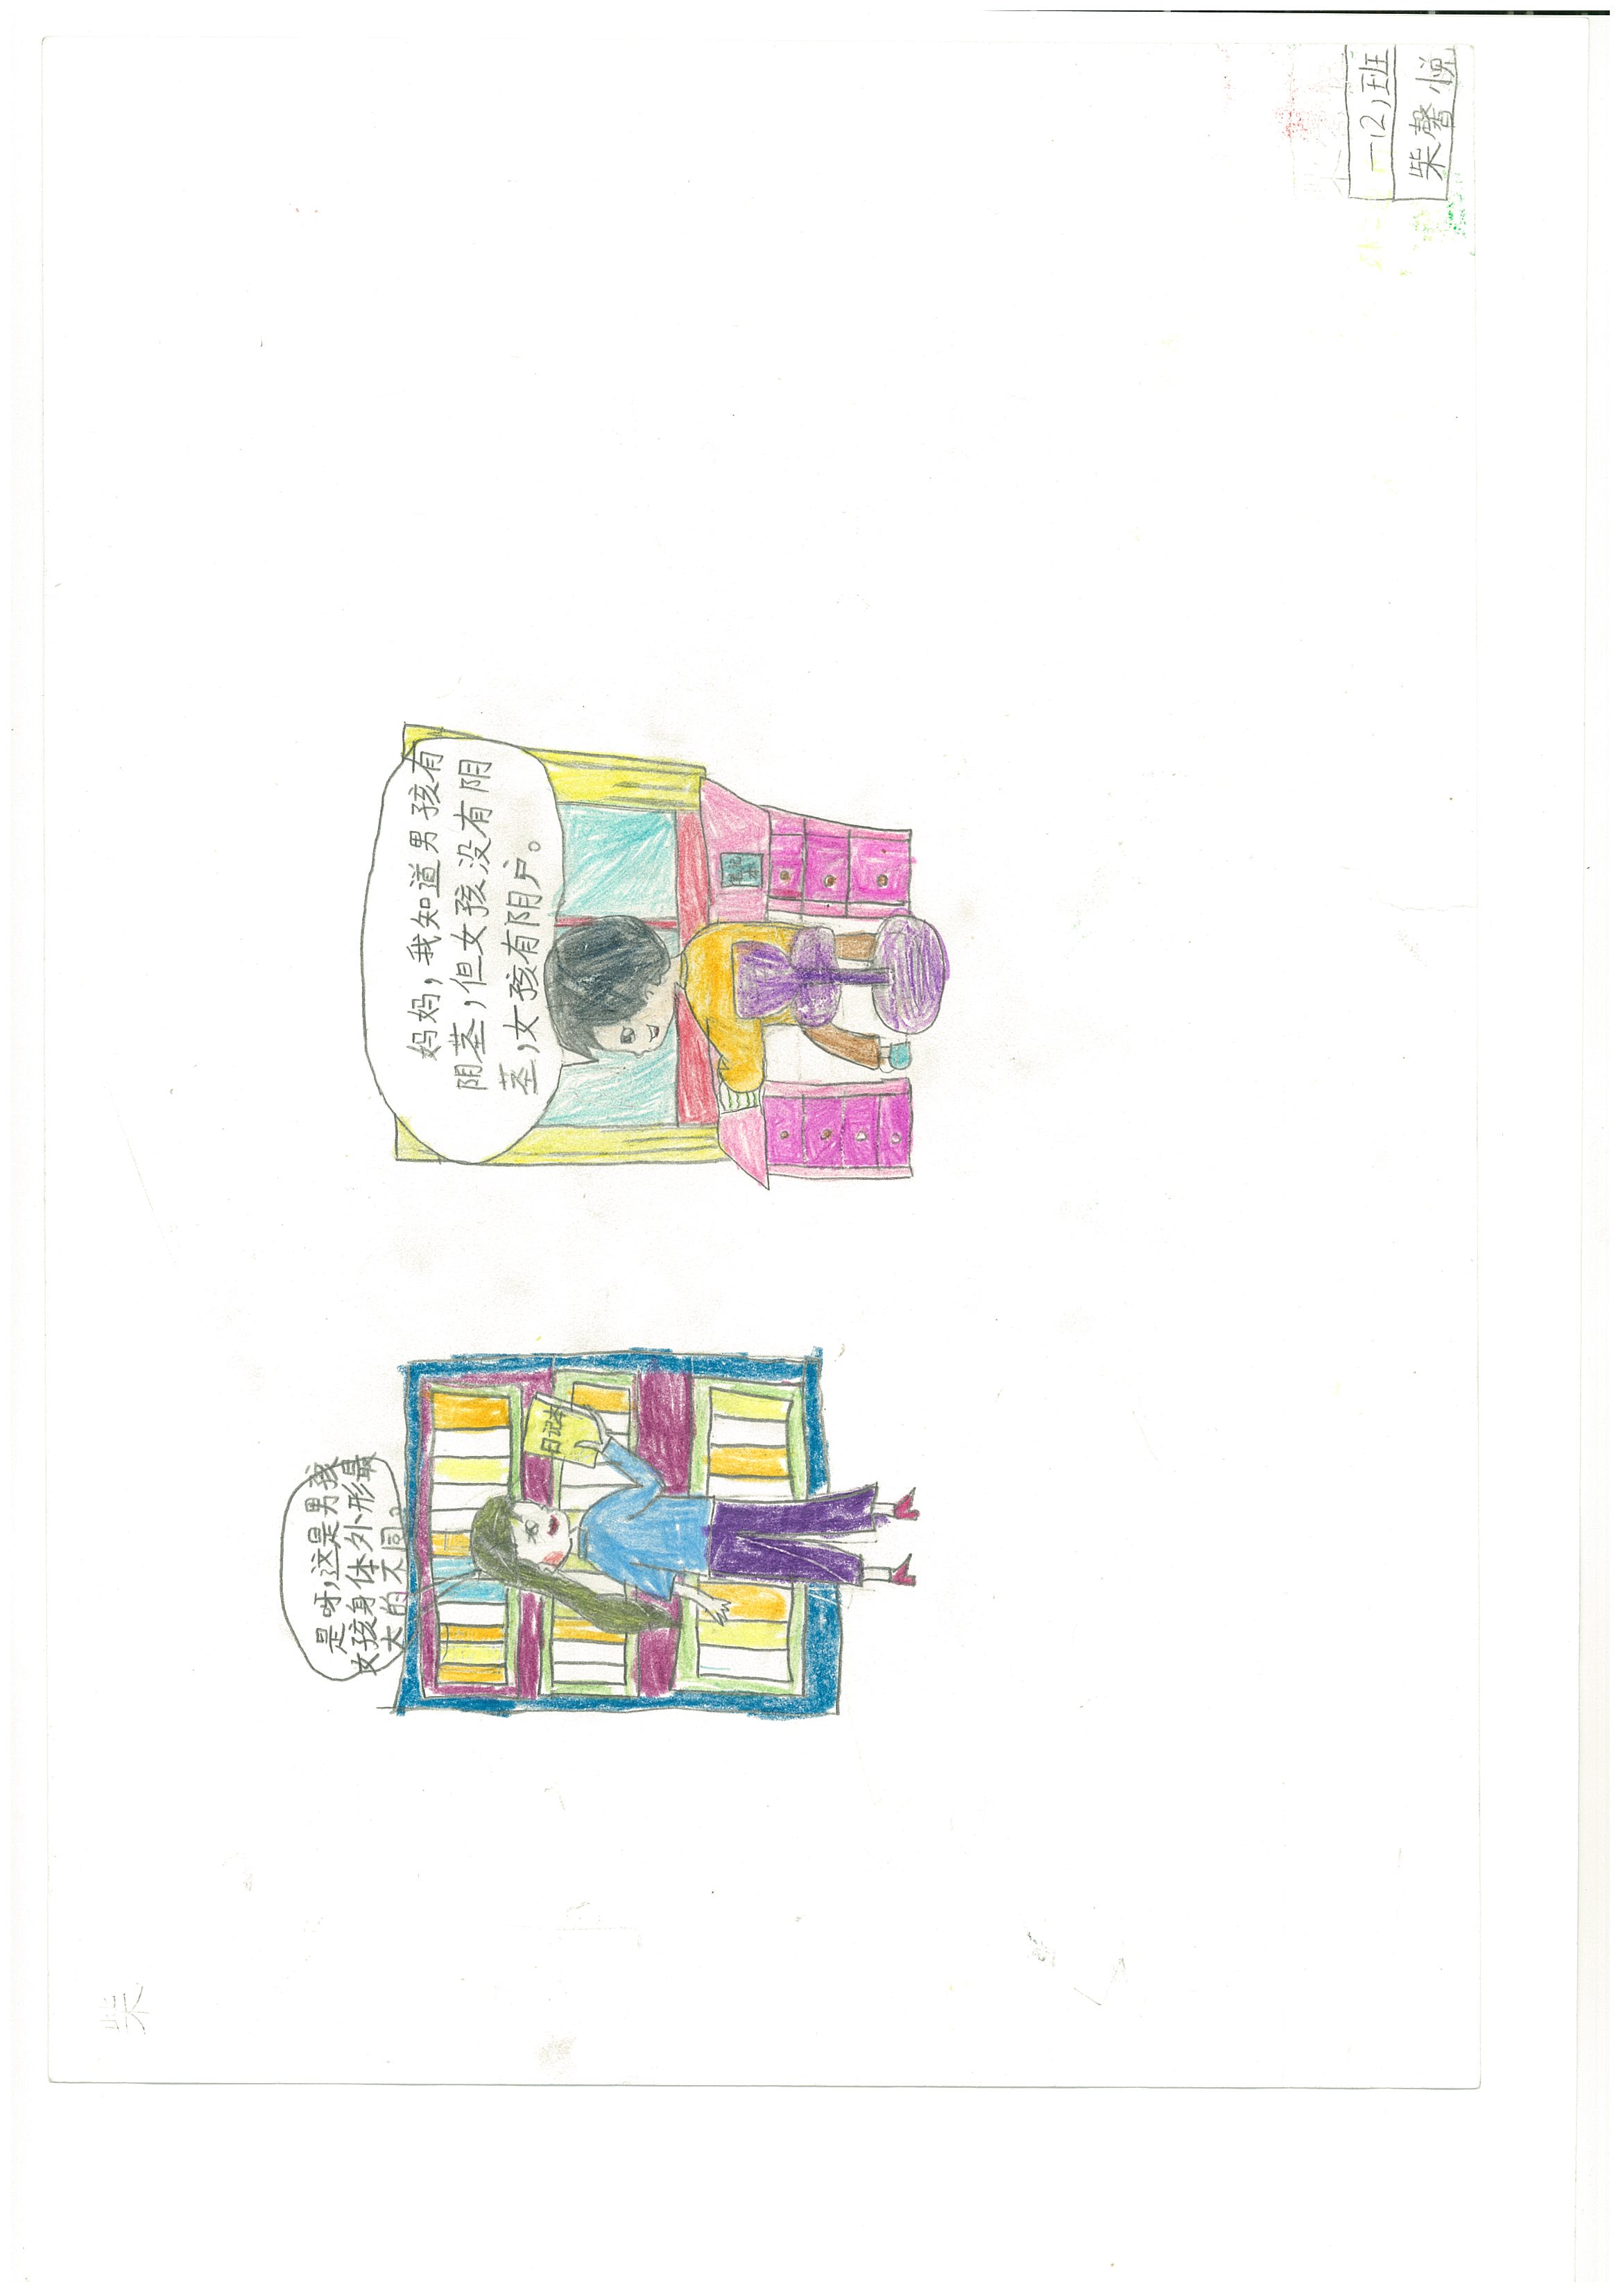 柴
是呀,这是男孩
女孩身体外形最
大的不同。
日记本
妈妈,我知道男孩有
阴茎,但女孩没有阴
茎,女孩有阴户。
笔记
本
一(2)班
柴馨悦